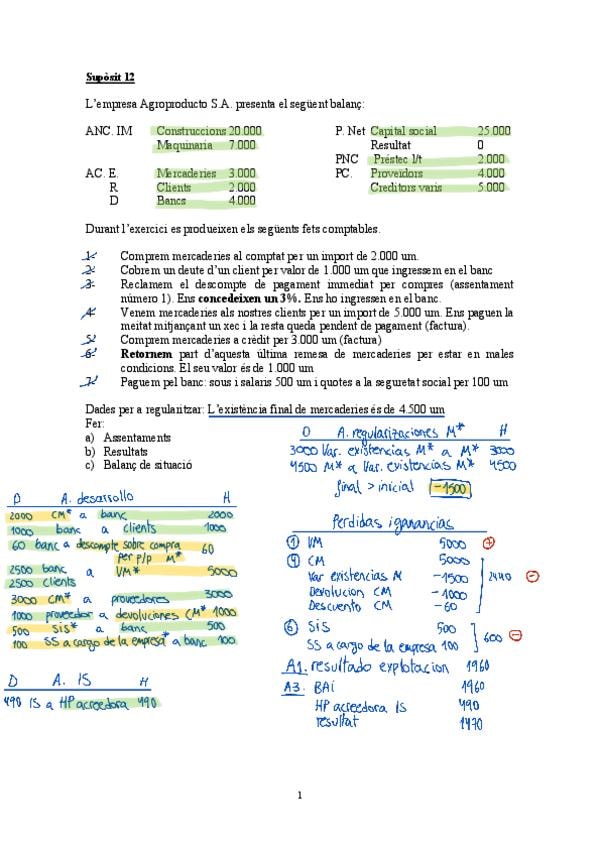 Supòsit 12
L'empresa Agroproducto S.A. presenta el següent balanç:
ANC. IM Construccions 20.000 P. Net Capital social 25.000
Maquinaria 7.000 Resultat 0
PNC Préstec l/t 2.000
AC. E. Mercaderies 3.000 PC. Proveïdors 4.000
R Clients 2.000 Creditors varis 5.000
D Bancs 4.000
Durant l'exercici es produeixen els següents fets comptables.
1. Comprem mercaderies al comptat per un import de 2.000 um.
2. Cobrem un deute d'un client per valor de 1.000 um que ingressem en el banc
3. Reclamem el descompte de pagament immediat per compres (assentament
número 1). Ens concedeixen un 3%. Ens ho ingressen en el banc.
4. Venem mercaderies als nostres clients per un import de 5.000 um. Ens paguen la
meitat mitjançant un xec i la resta queda pendent de pagament (factura).
5. Comprem mercaderies a crèdit per 3.000 um (factura)
6. Retornem part d'aquesta última remesa de mercaderies per estar en males
condicions. El seu valor és de 1.000 um
7. Paguem pel banc: sous i salaris 500 um i quotes a la seguretat social per 100 um
Dades per a regularitzar: L'existència final de mercaderies és de 4.500 um
Fer:
a) Assentaments
b) Resultats
c) Balanç de situació
D A. regularizaciones M* H
3000 Var. existencias M* a M* 3000
4500 M* a Var. existencias M* 4500
final > inicial -1500
D A. desarrollo H
2000 CM* a banc 2000
1000 banc a clients 1000
60 banc a descompte sobre compra 60
per p/p M*
2500 banc a VM* 5000
2500 clients
3000 CM* a proveedores 3000
1000 proveedor a devoluciones CM* 1000
500 SiS* a banc 500
100 SS a cargo de la empresa* a banc 100
D A. IS H
490 IS a HP acreedora 490
Perdidas i ganancias
① VM 5000 +
④ CM 5000
Var existencias M -1500 2440 -
Devolucion CM -1000
Descuento CM -60
⑥ SiS 500
SS a cargo de la empresa 100 600 -
A1. resultado explotacion 1960
A3. BAI 1960
HP acreedora IS 490
resultat 1470
1